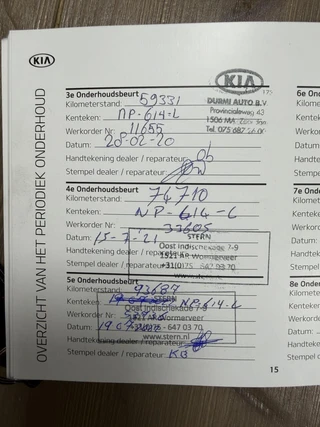 KIA
OVERZICHT VAN HET PERIODIEK ONDERHOUD
3e Onderhoudsbeurt
Kilometerstand: 59331
Kenteken: NP-614-L
Werkorder Nr: 11655
Datum: 20-02-20
Handtekening dealer / reparateur:
Stempel dealer / reparateur:
KIA
DURMI AUTO B.V.
Provincialeweg 43
1506 MA
Tel. 075 687
4e Onderhoudsbeurt
Kilometerstand: 74710
Kenteken: NP-614-L
Werkorder Nr: 33605
Datum: 15-7-'21
Handtekening dealer / reparateur:
Stempel dealer / reparateur:
STERN
Oost Indischekade 7-9
1521 AR Wormerveer
+31(0)75 - 647 03 70
5e Onderhoudsbeurt
Kilometerstand: 93687
Kenteken: NP-614-L
Werkorder Nr:
Datum: 19-07-
Handtekening dealer / reparateur:
Stempel dealer / reparateur: KB
STERN
Oost Indischekade 7-9
1521 AR Wormerveer
- 647 03 70
www.stern.nl
15
6e On
Kilomet
Kenteke
Werkor
Datum:
Handte
Stempe
7e On
Kilome
Kentek
Werko
Datum
Handt
Stemp
8e O
Kilom
Kente
Werk
Datu
Hand
Stem